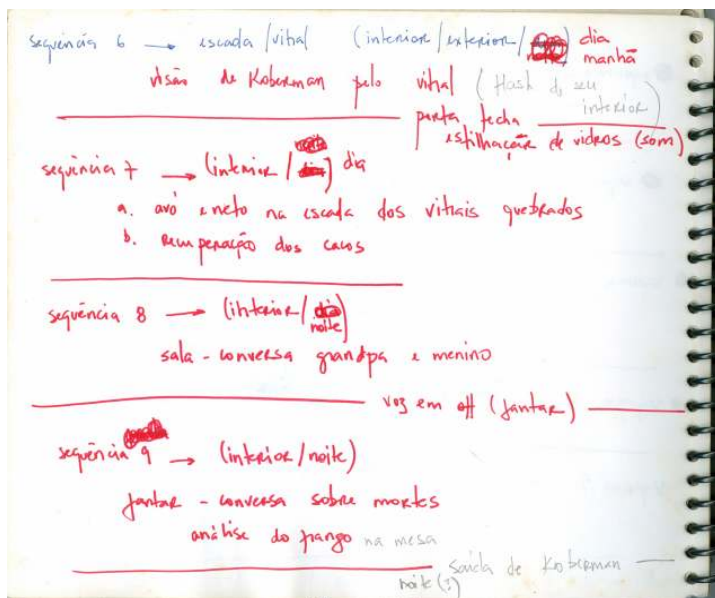 sequência 6 → escada / vitral (interior / exterior / dia
manhã
visão de Koberman pelo vitral (flash do seu
interior)
porta fecha
estilhaçar de vidros (som)
sequência 7 → (interior / dia
a. avô e neto na escada dos vitrais quebrados
b. recuperação dos cacos
sequência 8 → (interior / noite)
sala - conversa grandpa e menino
voz em off (jantar)
sequência 9 → (interior / noite)
jantar - conversa sobre mortes
análise do frango na mesa
saída de Koberman
noite (?)